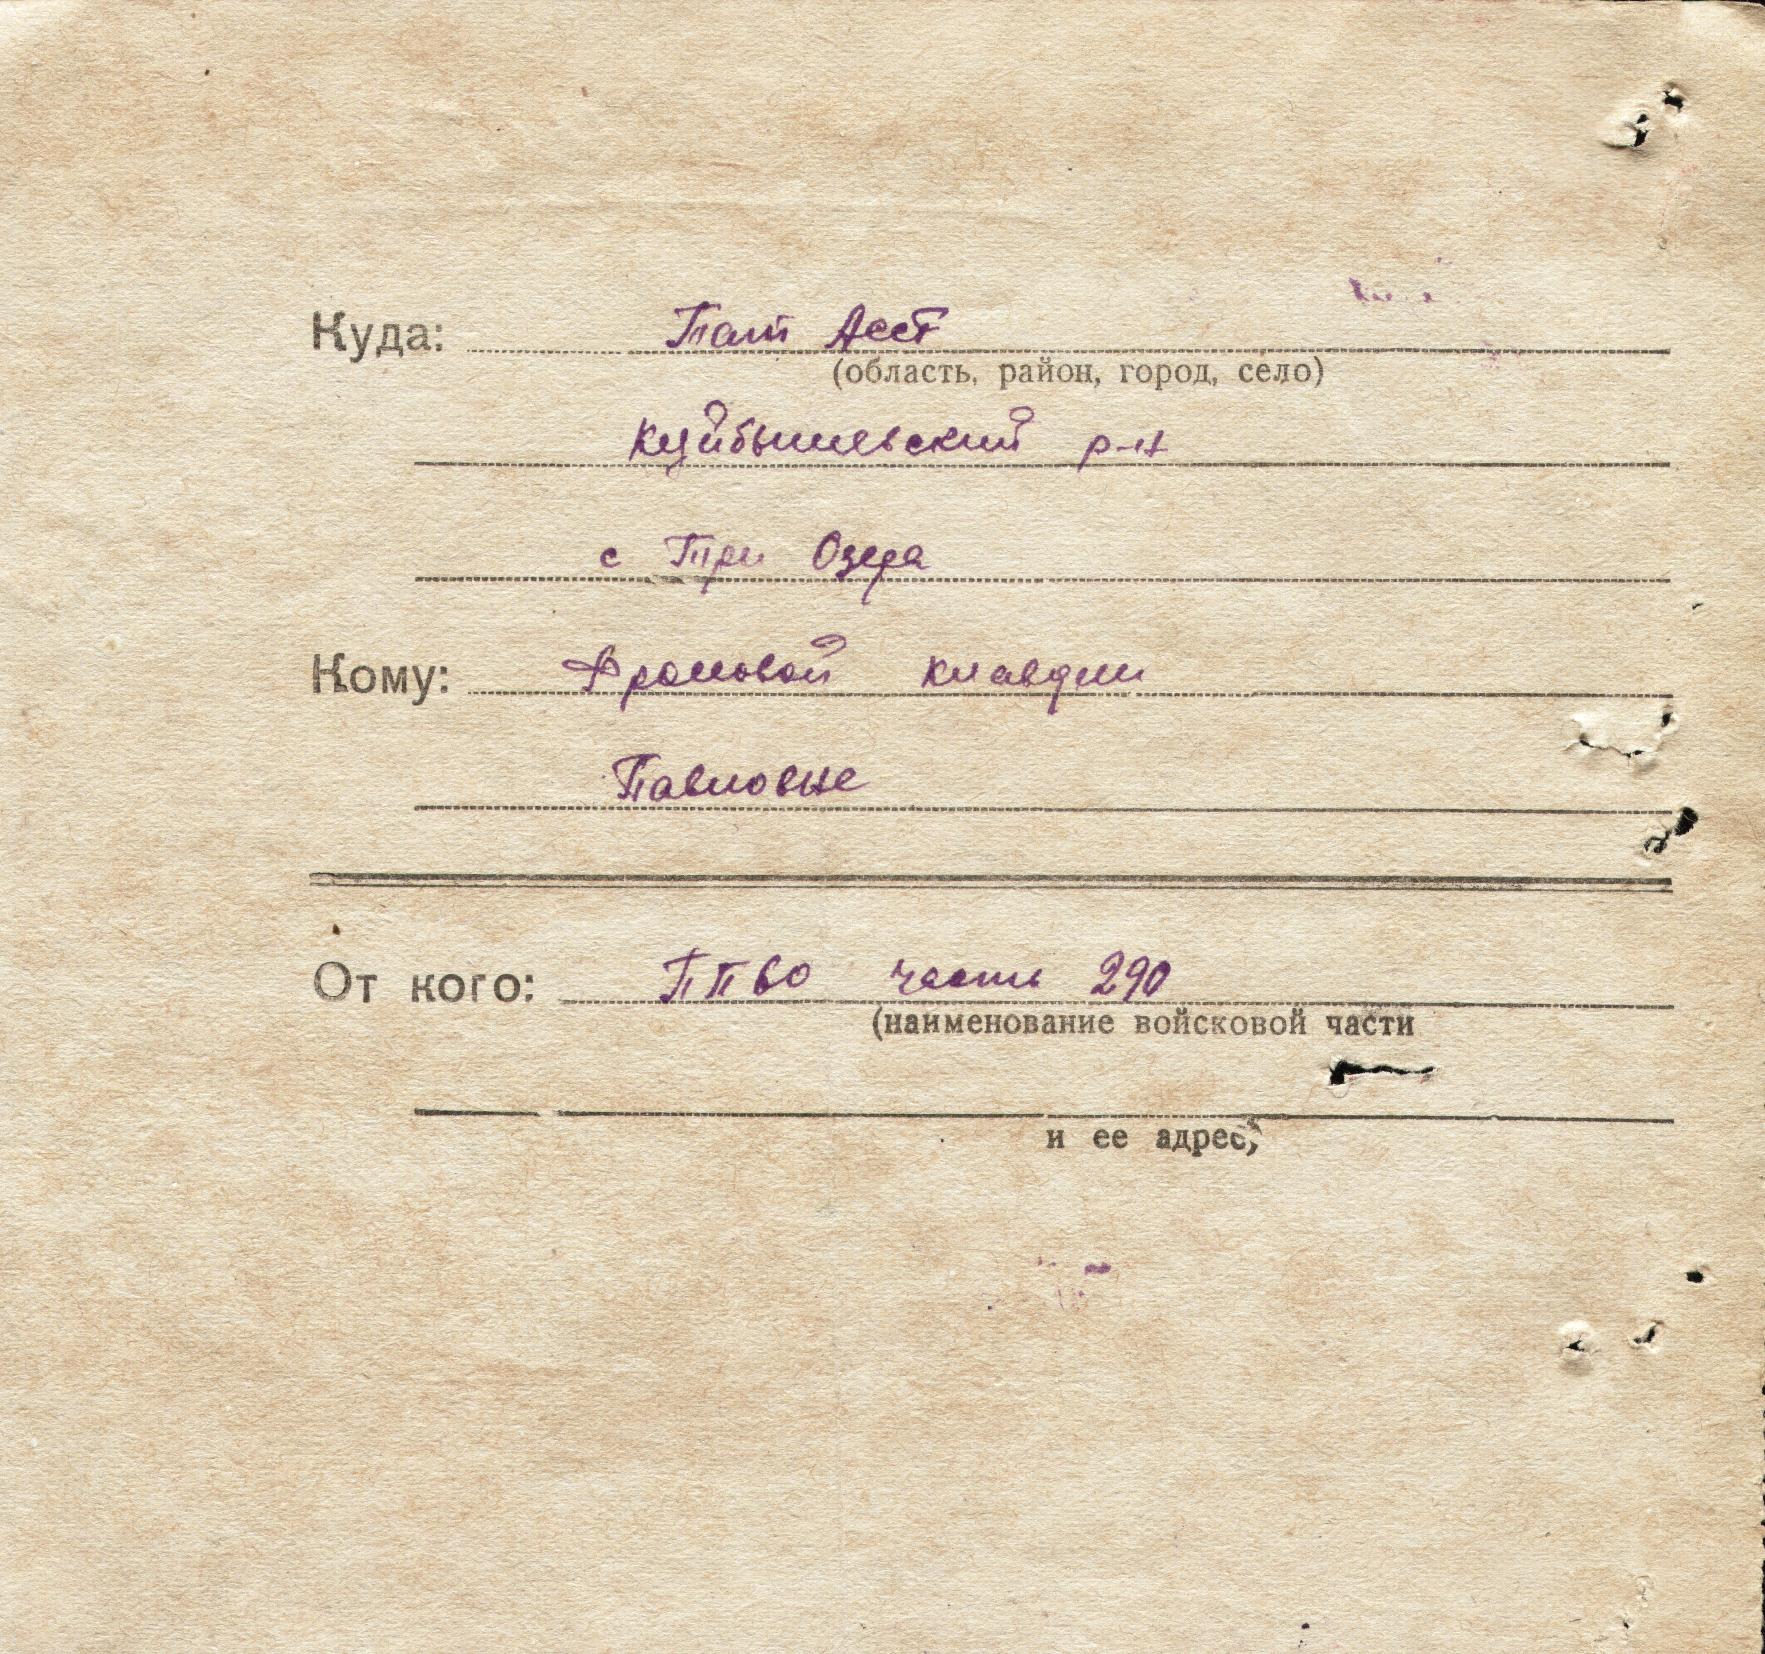 Куда: Тат Асст
(область, район, город, село)
Куйбышевский р-н
с Три Озера
Кому: Фроловой Клавдии
Павловне
От кого: ППВО часть 290
(наименование войсковой части
и ее адрес,